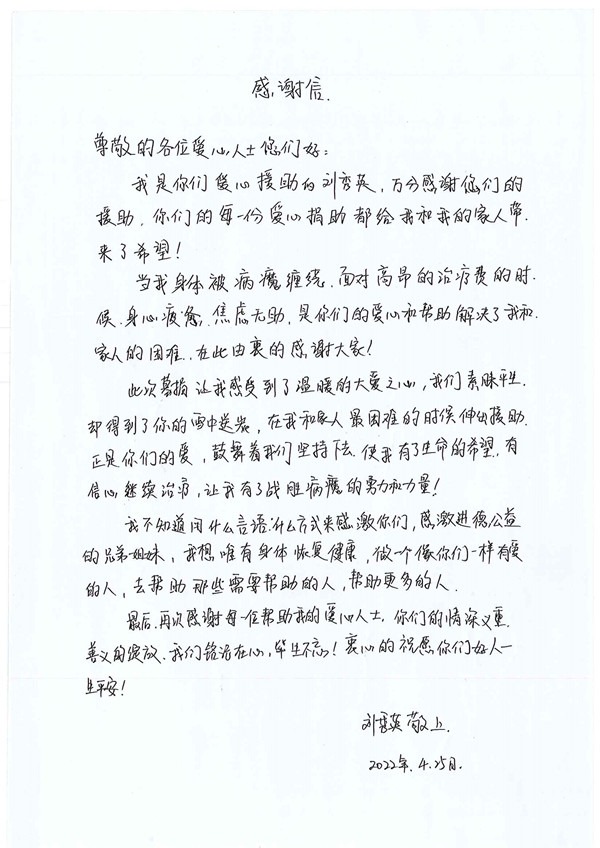 感谢信.
尊敬的各位爱心人士您们好:
我是你们爱心援助的刘秀英,万分感谢您们的
援助,你们的每一份爱心捐助都给我和我的家人带
来了希望!
当我身体被病魔缠绕,面对高昂的治疗费的时
候、身心疲惫,焦虑无助,是你们的爱心和帮助解决了我和
家人的困难.在此由衷的感谢大家!
此次募捐让我感受到了温暖的大爱之心,我们素昧平生
却得到了你的雪中送炭,在我和家人最困难的时候伸出援助.
正是你们的爱,鼓舞着我们坚持下去.使我有了生命的希望.有
信心继续治疗,让我有了战胜病魔的勇力和力量!
我不知道用什么言语.什么方式来感激你们,感激进德公益
的兄弟姐妹,我想唯有身体恢复健康,做一个像你们一样有爱
的人,去帮助那些需要帮助的人,帮助更多的人.
最后.再次感谢每一位帮助我的爱心人士.你们的情深义重.
善义的绽放.我们铭活在心,毕生不忘!衷心的祝愿你们好人一
生平安!
刘秀英 敬上.
2022年.4.25日.